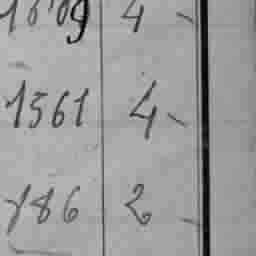 1609 4 -
1561 4 -
186 2 -